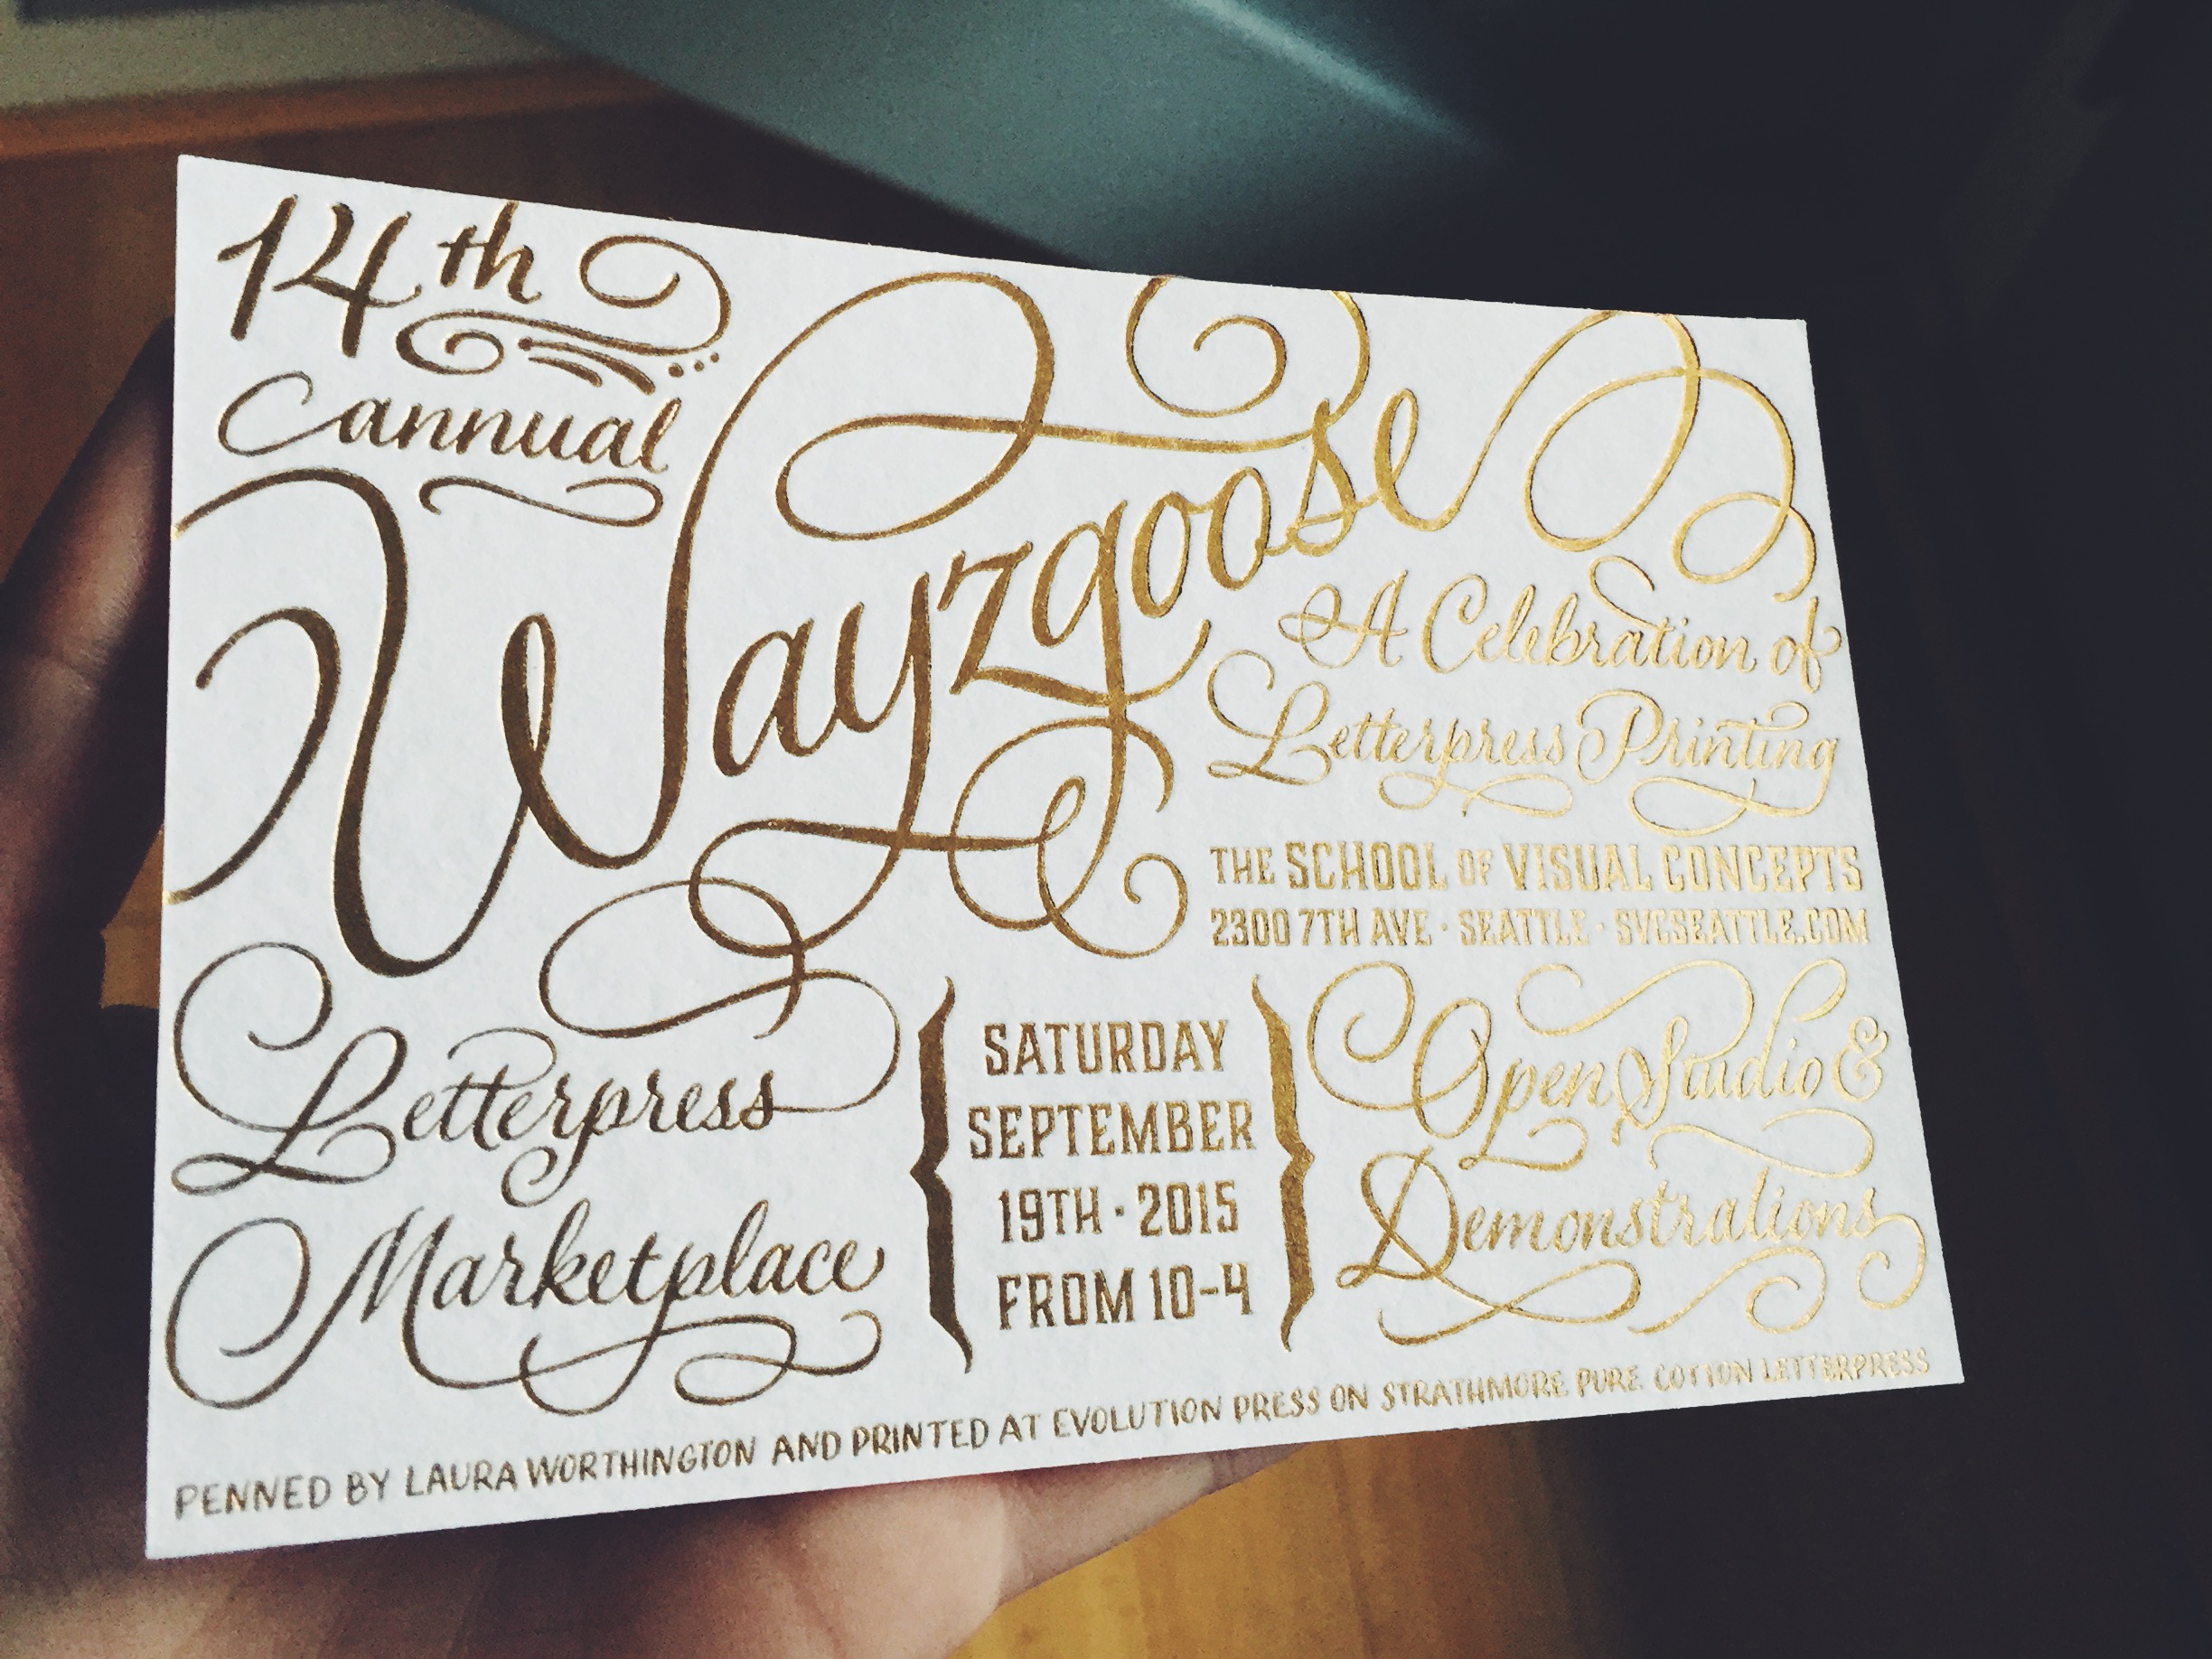 14th
annual
Wayzgoose
A Celebration of
Letterpress Printing
THE SCHOOL OF VISUAL CONCEPTS
2300 7TH AVE · SEATTLE · SVCSEATTLE.COM
Letterpress
Marketplace
SATURDAY
SEPTEMBER
19TH · 2015
FROM 10-4
Open Studio &
Demonstrations
PENNED BY LAURA WORTHINGTON AND PRINTED AT EVOLUTION PRESS ON STRATHMORE PURE COTTON LETTERPRESS